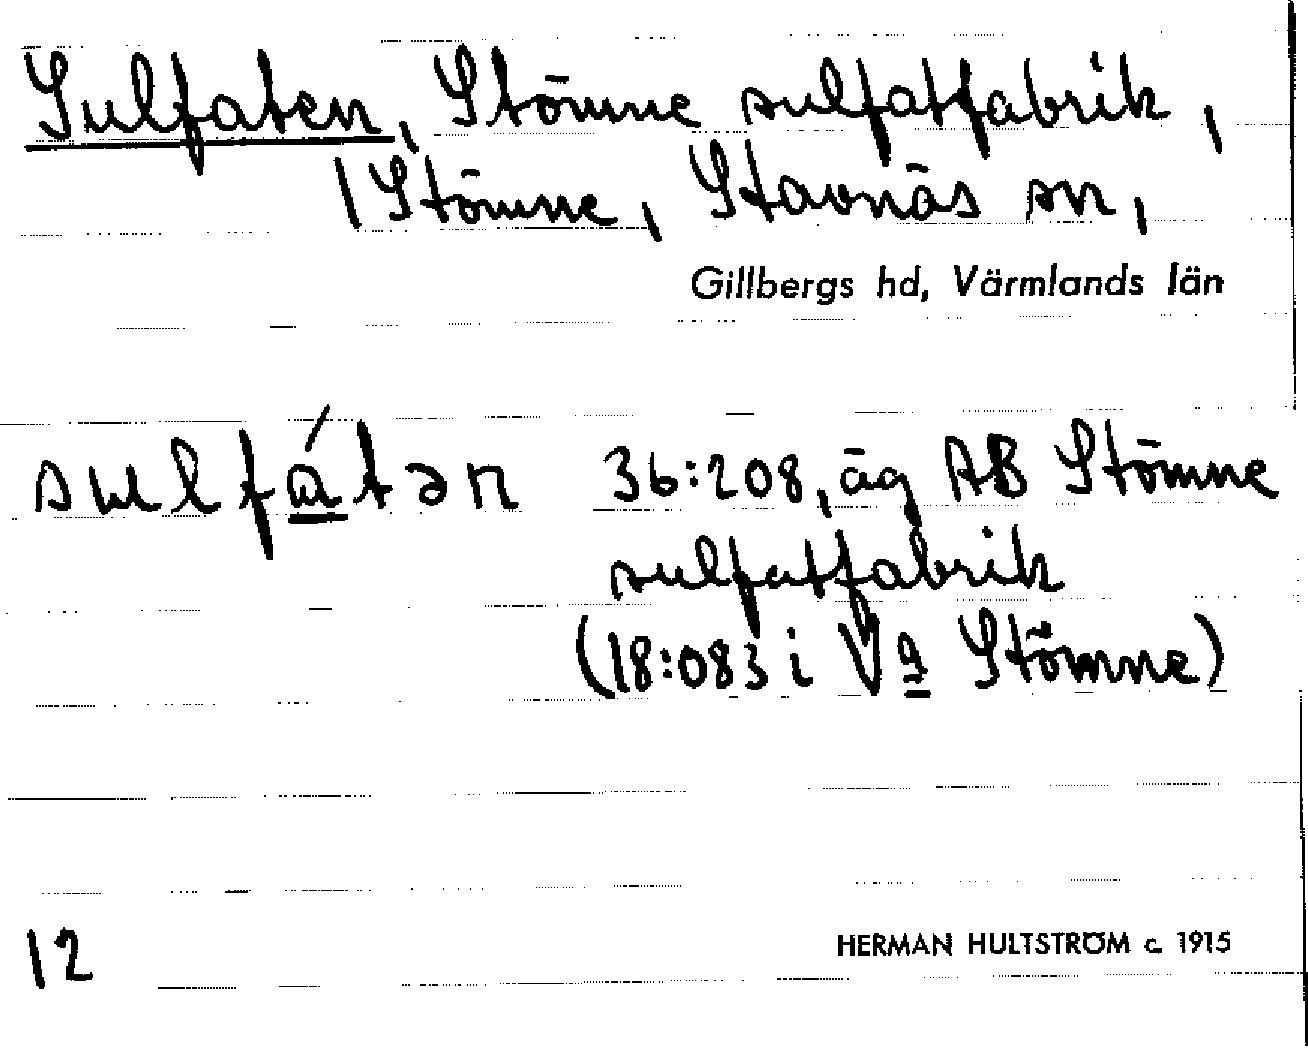 Sulfaten, Stömne sulfatfabrik,
1 Stömne, Stavnäs sn,
Gillbergs hd, Värmlands län
sulfátən 36:208, äg AB Stömne
sulfatfabrik
(18:083 i Va Stömne)
12 HERMAN HULTSTRÖM c. 1915